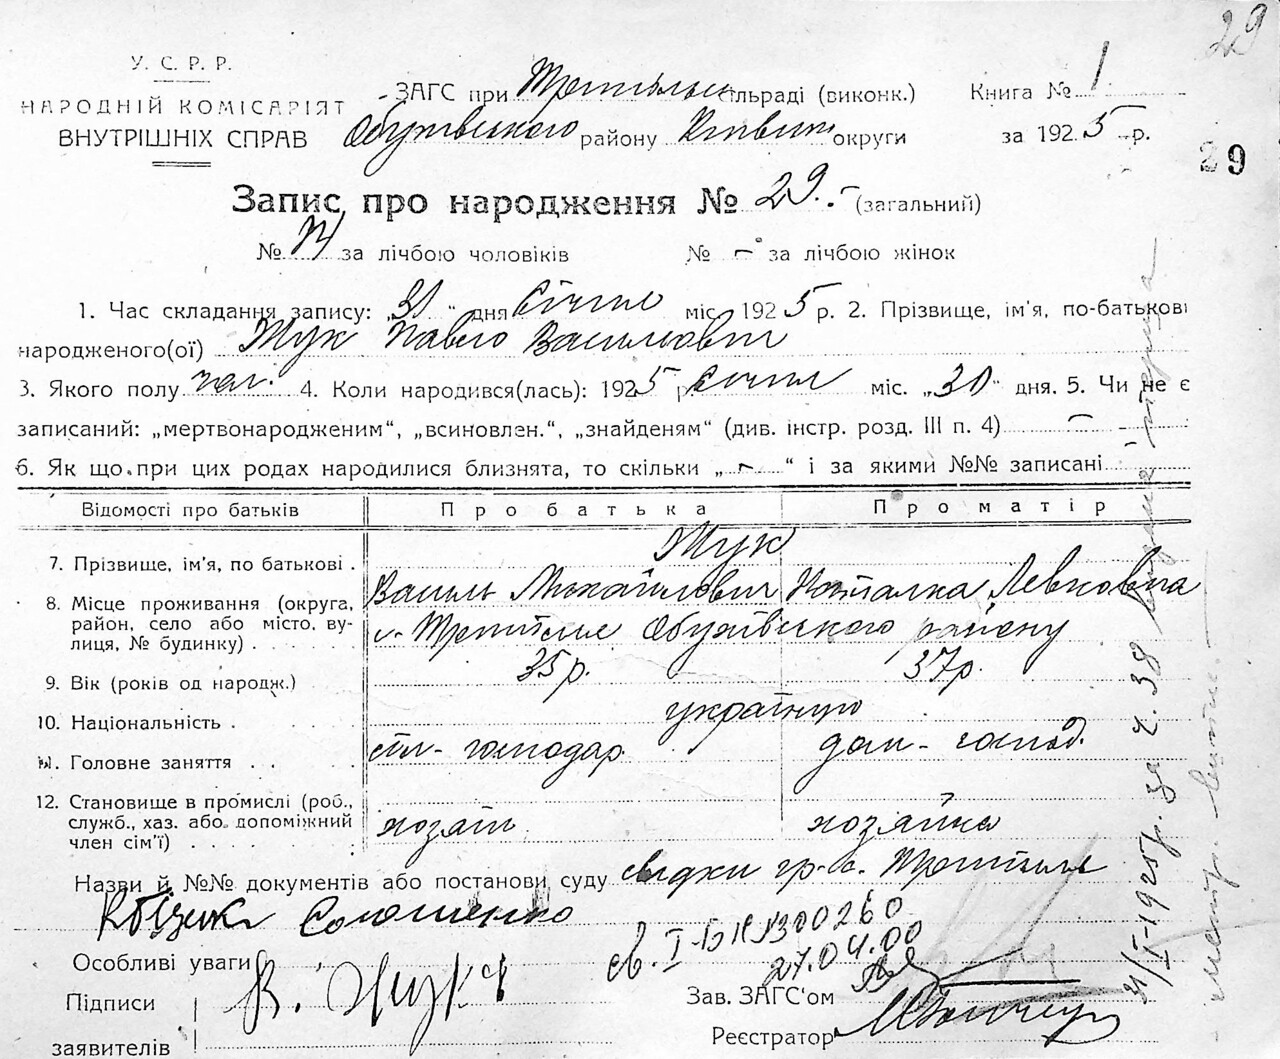 29
У. С. Р. Р.
НАРОДНІЙ КОМІСАРІЯТ
ВНУТРІШНІХ СПРАВ
ЗАГС при Трипільськ сільраді (виконк.) Книга № 1
Обухівського району Київськ округи за 1925 р.
29
Запис про народження № 29. - (загальний)
№ за лічбою чоловіків № - за лічбою жінок
1. Час складання запису: „31" дня Січня міс. 1925 р. 2. Прізвище, ім'я, по-батькові
народженого(ої) Жук Павло Васильович
3. Якого полу чол. 4. Коли народився(лась): 1925 р. Січня міс. „30" дня. 5. Чи не є
записаний: „мертвонародженим", „всиновлен.", „знайденям" (див. інстр. розд. III п. 4) -
6. Як що при цих родах народилися близнята, то скільки „ - " і за якими №№ записані
Відомості про батьків Про батька Про матір
7. Прізвище, ім'я, по батькові . Жук
Василь Михайлович Наталка Левковна
8. Місце проживання (округа,
район, село або місто, ву-
лиця, № будинку) . с. Трипілля Обухівського району
9. Вік (років од народж.) 35 р. 37 р.
10. Національність . українці
11. Головне заняття . . сіл- господар дом- господ.
12. Становище в промислі (роб.,
служб., хаз. або допоміжний
член сім'ї) . . . . хозяін хозяйка
Назви й №№ документів або постанови суду свідки гр-не Трипілля
Соломенко
Особливі уваги св. I-БК №300260
27.04.00
Підписи
заявителів В. Жук
Зав. ЗАГС'ом
Реєстратор
31/I-1925р. за ч. 38